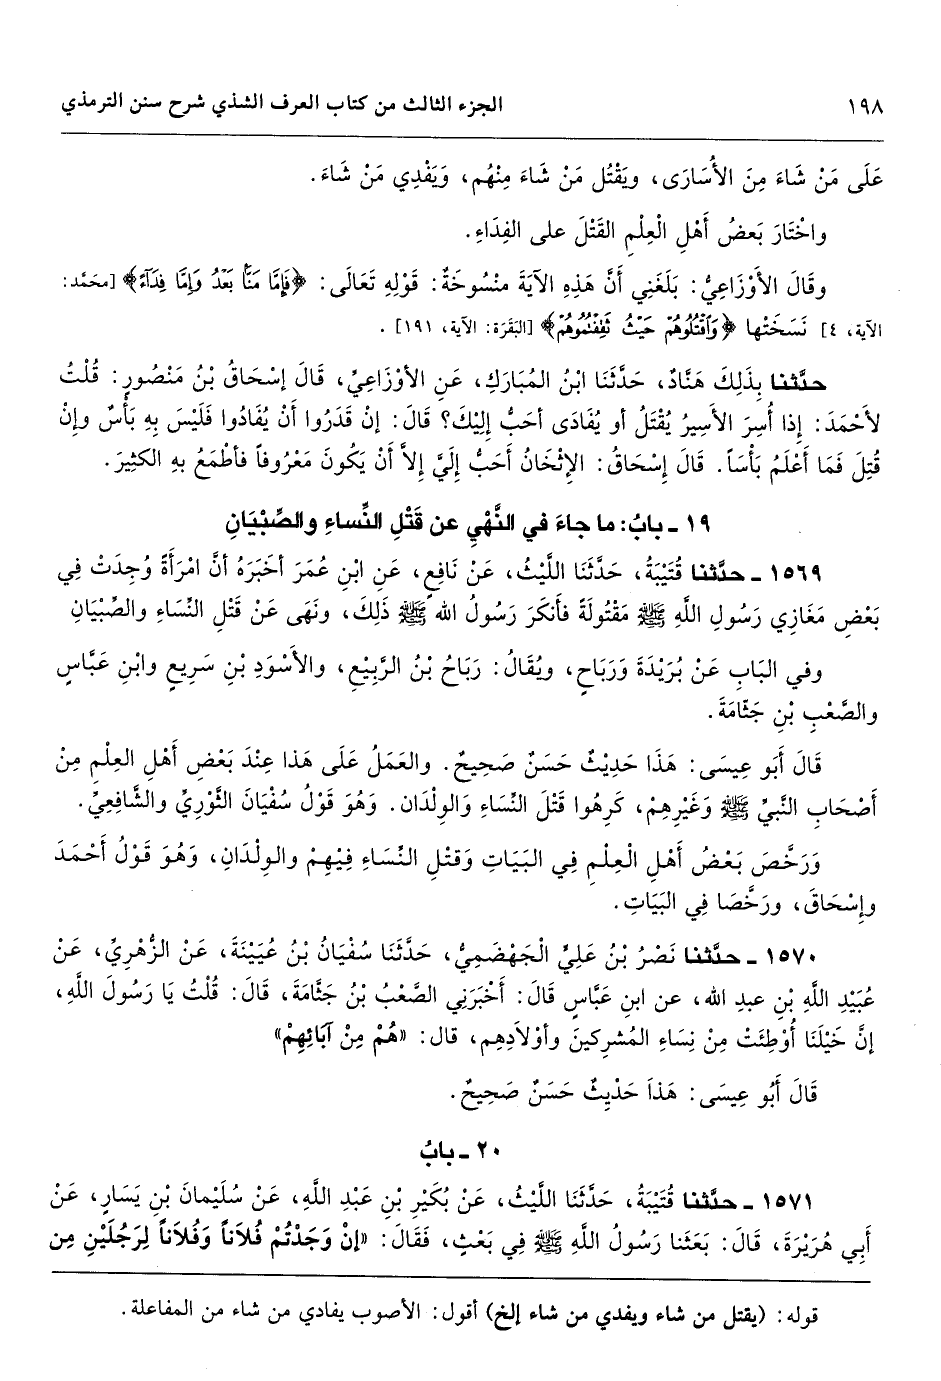 ١٩٨ الجزء الثالث من كتاب العرف الشذي شرح سنن الترمذي
عَلَى مَنْ شَاءَ مِنَ الأُسَارَى، ويَقْتُل مَنْ شَاءَ مِنْهُم، وَيَفْدِي مَنْ شَاءَ.
واخْتَارَ بَعضُ أَهْلِ الْعِلْمِ القَتْلَ على الفِدَاءِ.
وقَالَ الأَوْزَاعِيُّ: بَلَغَنِي أَنَّ هَذِهِ الآيَةَ مَنْسُوخَةٌ: قَوْلِهِ تَعَالَى: ﴿فَإِمَّا مَنًّا بَعْدُ وَإِمَّا فِدَآءً﴾ [محَمَّد:
الآية، ٤] نَسَخَتْها ﴿وَاقْتُلُوهُمْ حَيْثُ ثَقِفْتُمُوهُمْ﴾ [البَقَرَة: الآية، ١٩١].
حدَّثنا بِذَلِكَ هَنَّادٌ، حَدَّثَنَا ابْنُ المُبَارَكِ، عَنِ الأوْزَاعِيِّ، قَالَ إسْحَاقُ بْنُ مَنْصُورٍ: قُلْتُ
لأحْمَدَ: إذا أُسِرَ الأسِيرُ يُقْتَلُ أو يُفَادَى أحَبُّ إِلَيْكَ؟ قَالَ: إنْ قَدَرُوا أَنْ يُفَادُوا فَلَيْسَ بِهِ بَأْسٌ وإنْ
قُتِلَ فَمَا أَعْلَمُ بَأْسَاً. قَالَ إِسْحَاقُ: الإثْخَانُ أَحَبُّ إلَيَّ إلاَّ أَنْ يَكُونَ مَعْرُوفاً فأطْمَعُ بهِ الكثِيرَ.
١٩ ـ بابُ: ما جاءَ في النَّهْيِ عن قَتْلِ النِّساءِ والصِّبْيَانِ
١٥٦٩ ـ حدَّثنا قُتَيْبَةُ، حَدَّثَنَا اللَّيْثُ، عَنْ نَافِعٍ، عَنِ ابْنِ عُمَرَ أخبَرَهُ أنَّ امْرَأَةً وُجِدَتْ فِي
بَعْضِ مَغَازِي رَسُولِ اللَّهِ ﷺ مَقْتُولَةً فأنكَرَ رَسُولُ الله ﷺ ذَلِكَ، ونَهَى عَنْ قَتْلِ النِّسَاءِ والصِّبْيَانِ
وفي البَابِ عَنْ بُرَيْدَةَ وَرَبَاحٍ، ويُقَالُ: رَبَاحُ بْنُ الرَّبِيْعِ، والأسْوَدِ بْنِ سَرِيعٍ وابْنِ عَبَّاسٍ
والصَّعْبِ بْنِ جَثّامَةَ.
قَالَ أَبو عِيسَى: هَذَا حَدِيْثٌ حَسَنٌ صَحِيحٌ. والعَمَلُ عَلَى هَذا عِنْدَ بَعْضِ أَهْلِ العِلْمِ مِنْ
أَصْحَابِ النَّبيِّ ﷺ وَغَيْرِهِمْ، كَرِهُوا قَتْلَ النِّسَاءِ وَالوِلْدَانِ. وَهُوَ قَوْلُ سُفْيَانَ الثَّوْرِيِّ والشَّافِعِيِّ.
وَرَخَّصَ بَعْضُ أَهْلِ الْعِلْمِ فِي البَيَاتِ وَقتْلِ النِّسَاءِ فِيْهِمْ والوِلْدَانِ، وَهُوَ قَوْلُ أَحْمَدَ
وإسْحَاقَ، ورَخَّصَا فِي البَيَاتِ.
١٥٧٠ ـ حدَّثنا نَصْرُ بْنُ عَلِيِّ الْجَهْضَمِيُّ، حَدَّثَنَا سُفْيَانُ بْنُ عُيَيْنَةَ، عَنْ الزُّهْرِيِّ، عَنْ
عُبَيْدِ اللَّهِ بْنِ عبدِ الله، عن ابنِ عَبَّاسٍ قَالَ: أَخْبَرَنِي الصَّعْبُ بْنُ جَثَّامَةَ، قَالَ: قُلْتُ يَا رَسُولَ اللَّهِ،
إنَّ خَيْلَنَا أُوْطِئَتْ مِنْ نِسَاءِ المُشرِكينَ وأوْلاَدِهِم، قال: «هُمْ مِنْ آبَائِهِمْ»
قَالَ أَبُو عِيسَى: هَذاَ حَدْيِثٌ حَسَنٌ صَحِيحٌ.
٢٠ ـ بابُ
١٥٧١ ـ حدَّثنا قُتَيْبَةُ، حَدَّثَنَا اللَّيْثُ، عَنْ بُكَيْرِ بْنِ عَبْدِ اللَّهِ، عَنْ سُلَيْمانَ بْنِ يَسَارٍ، عَنْ
أَبِي هُرَيْرَةَ، قَالَ: بَعَثَنا رَسُولُ اللَّهِ ﷺ فِي بَعْثٍ، فَقَالَ: «إنْ وَجَدْتُمْ فُلَاناً وَفُلَاناً لِرَجُلَيْنِ مِن
قوله: (يقتل من شاء ويفدي من شاء إلخ) أقول: الأصوب يفادي من شاء من المفاعلة.